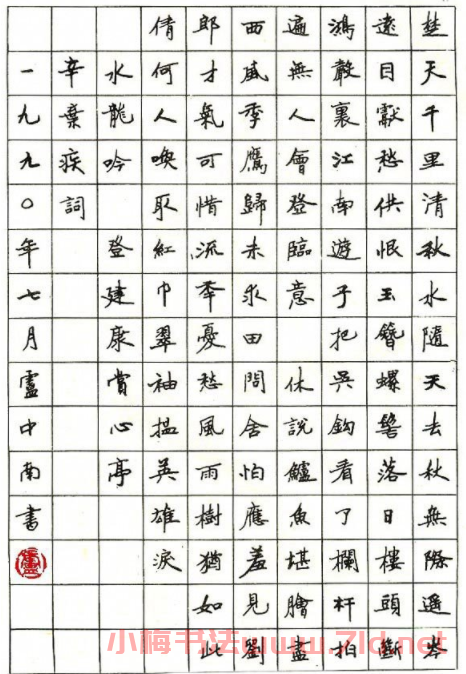 楚天千里清秋水隨天去秋無際遥岑
遠目獻愁供恨玉簪螺髻落日樓頭斷
鴻聲裏江南遊子把吳鈎看了欄杆拍
遍無人會登臨意 休說鱸魚堪膾盡
西風季鷹歸未求田問舍怕應羞見劉
郎才氣可惜流年憂愁風雨樹猶如此
倩何人喚取紅巾翠袖揾英雄淚
水龍吟 登建康賞心亭
辛棄疾詞
一九九〇年七月盧中南書
小悔书法www.7ld.net